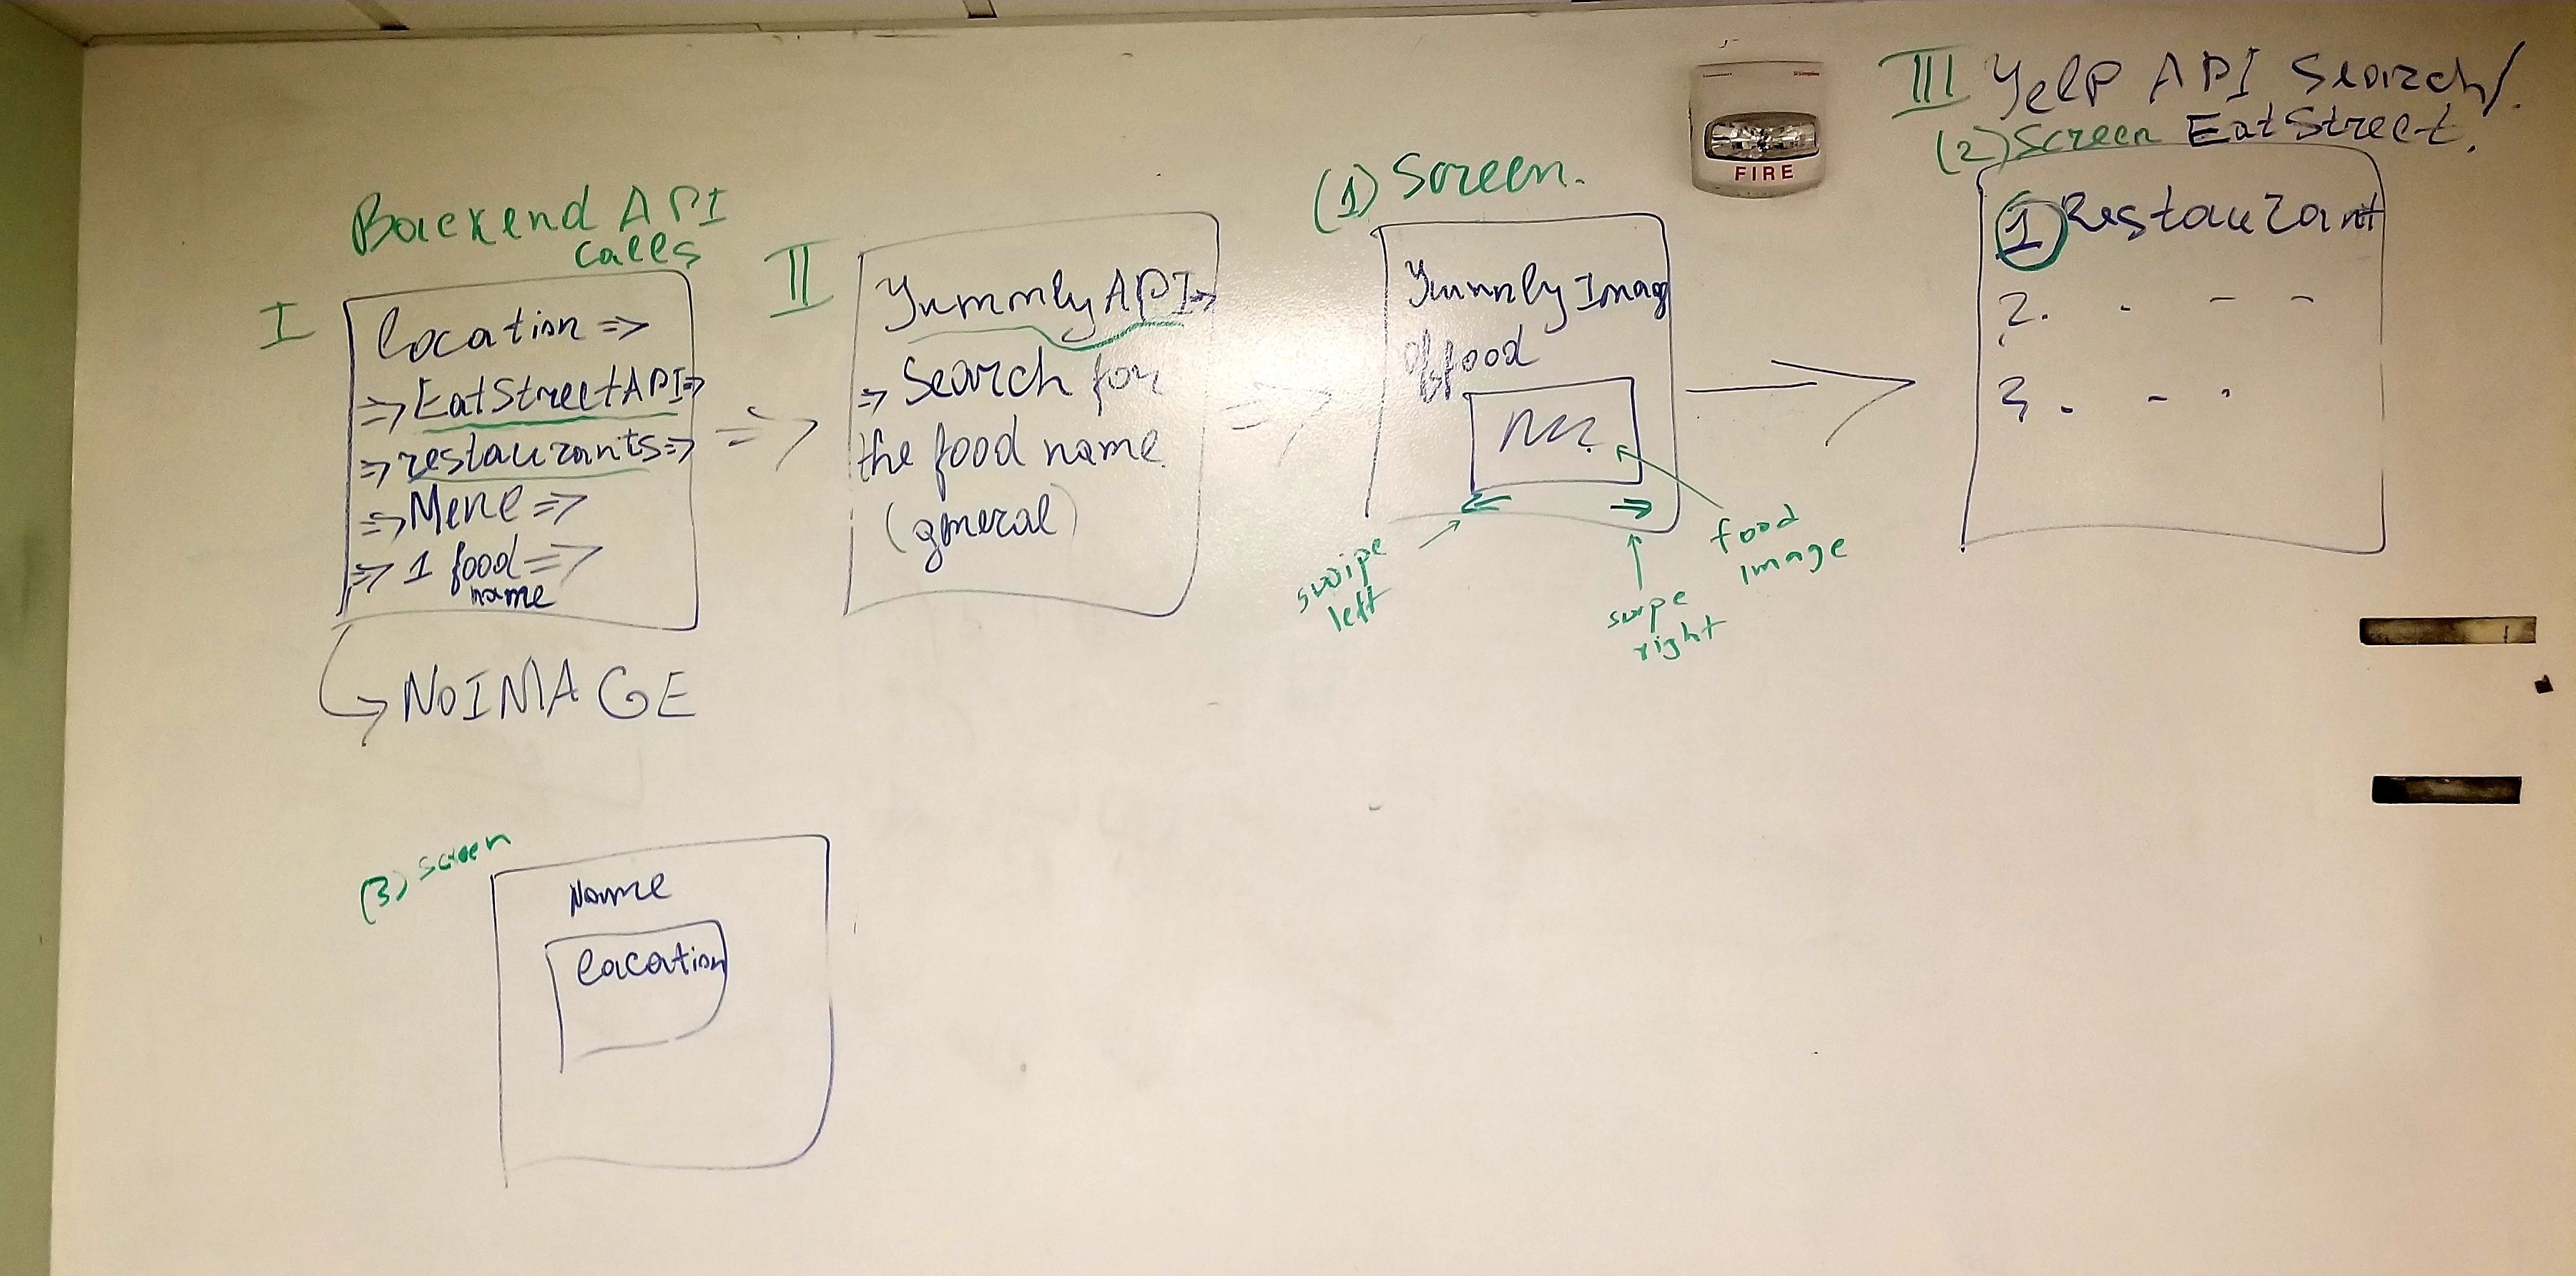 Backend API
calls
I
Location =>
=> EatStreetAPI =>
=> restaurants =>
=> Menu =>
=> 1 food =>
name
NO IMAGE
II
Yummly API =>
=> Search for
the food name
(general)
(1) Screen.
Yummly Imag
of food
swipe
left
swipe
right
food
image
FIRE
III Yelp API Search/.
(2) Screen EatStreet.
1 Restaurant
2. . - -
3. - .
(3) screen
Name
Location